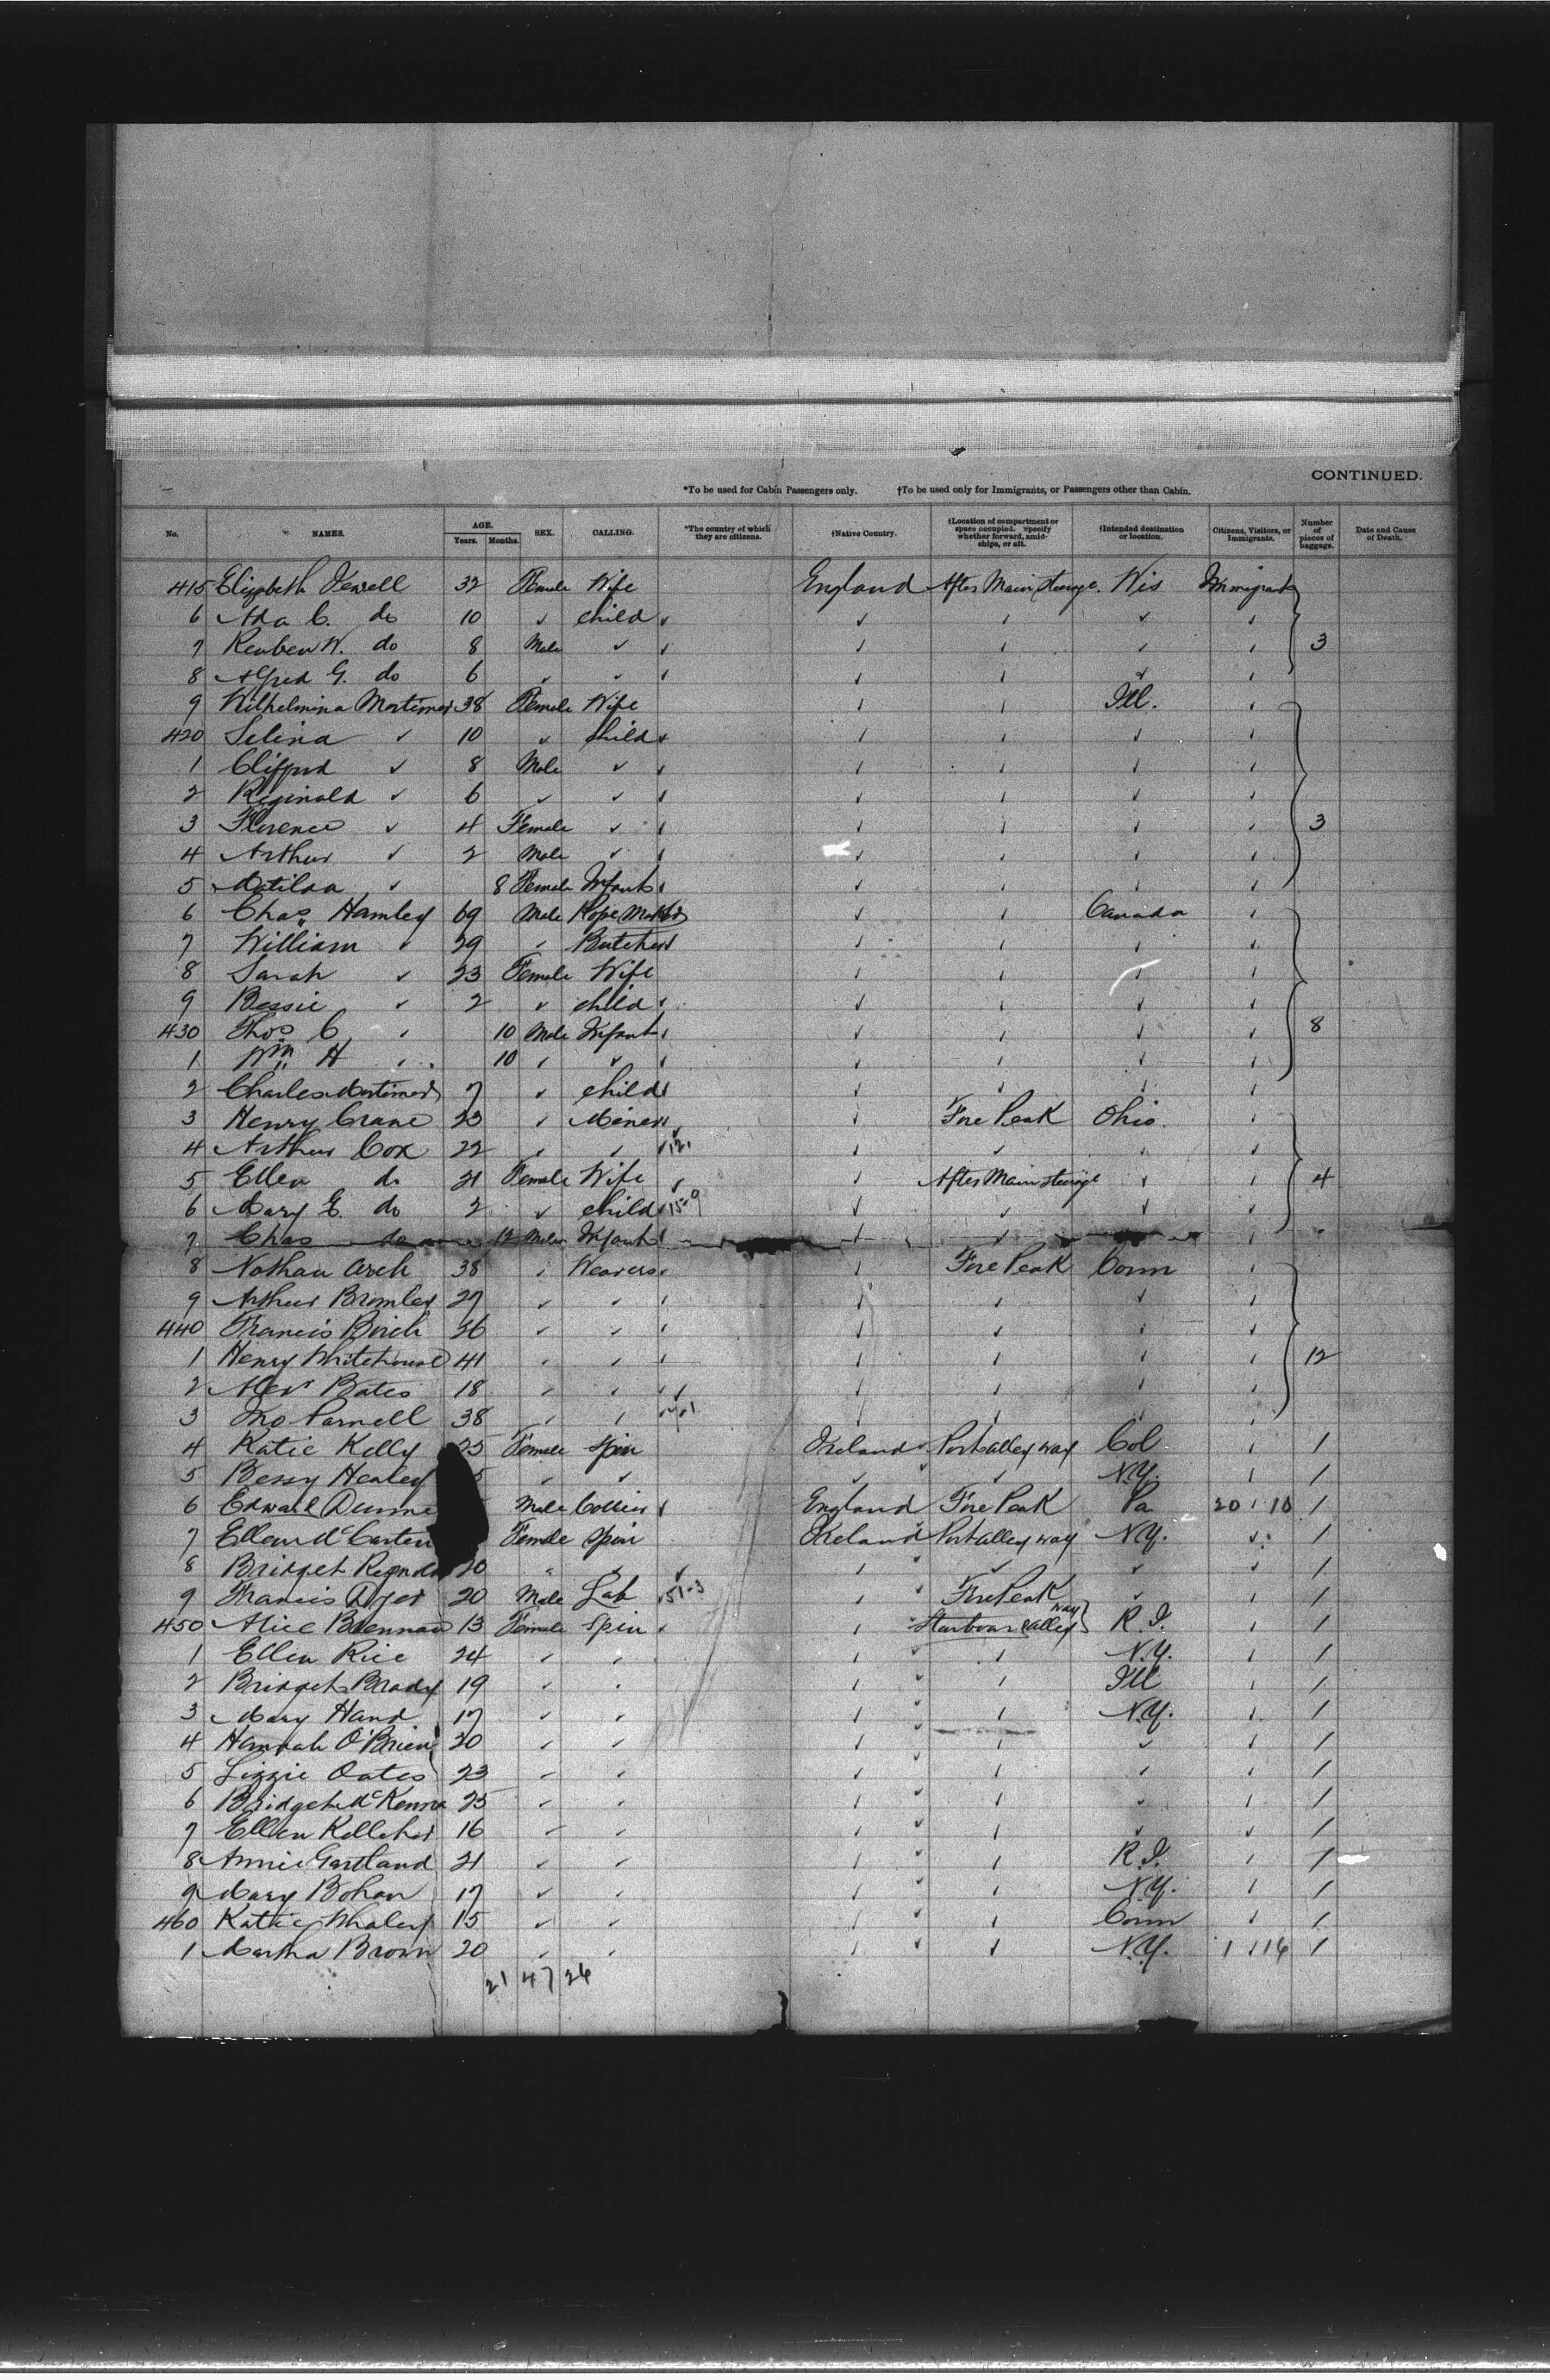 CONTINUED.
*To be used for Cabin Passengers only. †To be used only for Immigrants, or Passengers other than Cabin.
No. NAMES. AGE. Years. Months. SEX. CALLING. *The country of which they are citizens. †Native Country. †Location of compartment or space occupied, specify whether forward, amidships, or aft. †Intended destination or location. Citizens, Visitors, or Immigrants. Number of pieces of baggage. Date and Cause of Death.
415 Elizabeth 32 Female Wife England After Main Steerage. Wis Immigrant
6 Ada C. do 10 ✓ child ✓ ✓ ✓ ✓ ✓
7 Reuben W. do 8 Male ✓ ✓ ✓ ✓ ✓ ✓ 3
8 Alfred G. do 6 ✓ ✓ ✓ ✓ ✓ ✓ ✓
9 Wilhelmina Mortimer 38 Female Wife ✓ ✓ Ill. ✓
420 Selina ✓ 10 ✓ child ✓ ✓ ✓ ✓ ✓
1 Clifford ✓ 8 Male ✓ ✓ ✓ ✓ ✓ ✓
2 Reginald ✓ 6 ✓ ✓ ✓ ✓ ✓ ✓ ✓
3 Florence ✓ 4 Female ✓ ✓ ✓ ✓ ✓ ✓ 3
4 Arthur ✓ 2 Male ✓ ✓ ✓ ✓ ✓ ✓
5 Matilda ✓ 8 Female Infant ✓ ✓ ✓ ✓ ✓
6 Chas Hamley 69 Male Rope Maker ✓ ✓ Canada ✓
7 William ✓ 29 ✓ Butcher ✓ ✓ ✓ ✓ ✓
8 Sarah ✓ 23 Female Wife ✓ ✓ ✓ ✓
9 Bessie ✓ 2 ✓ child ✓ ✓ ✓ ✓ ✓
430 Thos C. ✓ 10 Male Infant ✓ ✓ ✓ ✓ ✓ 8
1 Wm H ✓ 10 ✓ ✓ ✓ ✓ ✓ ✓ ✓
2 Charles Mortimer 7 ✓ child ✓ ✓ ✓ ✓ ✓
3 Henry Crane 23 ✓ Miner ✓ ✓ Fore Peak Ohio. ✓
4 Arthur Cox 22 ✓ ✓ ✓ ✓ ✓ ✓ ✓
5 Ellen do 21 Female Wife ✓ ✓ After Main steerage ✓ ✓ 4
6 Mary E. do 2 ✓ child ✓ ✓ ✓ ✓ ✓
7 Chas do 12 Male Infant ✓ ✓ ✓ ✓
8 Nathan Arch 38 ✓ Weavers ✓ ✓ Fore Peak Conn ✓
9 Arthur Bromley 27 ✓ ✓ ✓ ✓ ✓ ✓ ✓
440 Francis Birch 26 ✓ ✓ ✓ ✓ ✓ ✓ ✓
1 Henry Whitehouse 41 ✓ ✓ ✓ ✓ ✓ ✓ ✓ 12
2 Alexr Bates 18 ✓ ✓ ✓ ✓ ✓ ✓ ✓
3 Jno Parnell 38 ✓ ✓ ✓ ✓ ✓ ✓
4 Katie Kelly 25 Female Spin Ireland Port alley way Col ✓ 1
5 Bessy Healey ✓ ✓ ✓ ✓ N.Y. ✓ 1
6 Edward Dunne Male Collier ✓ England Fore Peak Pa 20 ✓ 10 1
7 Ellen McCarten Female Spin Ireland Port alley way N.Y. ✓ 1
8 Bridget 20 ✓ ✓ ✓ ✓ ✓ ✓ 1
9 Francis Dyer 20 Male Lab ✓ Fore Peak ✓ ✓ 1
450 Alice Brennan 13 Female Spin ✓ ✓ Starboard alley way R.I. ✓ 1
1 Ellen Rice 24 ✓ ✓ ✓ ✓ N.Y. ✓ 1
2 Bridget Brady 19 ✓ ✓ ✓ ✓ Ill ✓ 1
3 Mary Hand 17 ✓ ✓ ✓ ✓ N.Y. ✓ 1
4 Hannah O'Brien 20 ✓ ✓ ✓ ✓ ✓ ✓ 1
5 Lizzie Oates 23 ✓ ✓ ✓ ✓ ✓ ✓ 1
6 Bridget McKenna 25 ✓ ✓ ✓ ✓ ✓ ✓ 1
7 Ellen Kelleher 16 ✓ ✓ ✓ ✓ ✓ ✓ 1
8 Annie Gartland 21 ✓ ✓ ✓ ✓ R.I. ✓ 1
9 Mary Bohan 17 ✓ ✓ ✓ ✓ N.Y. ✓ 1
460 Katie Whaley 15 ✓ ✓ ✓ ✓ Conn ✓ 1
1 Martha Brown 20 ✓ ✓ ✓ ✓ N.Y. 1 ✓ 16 1
21 47 26